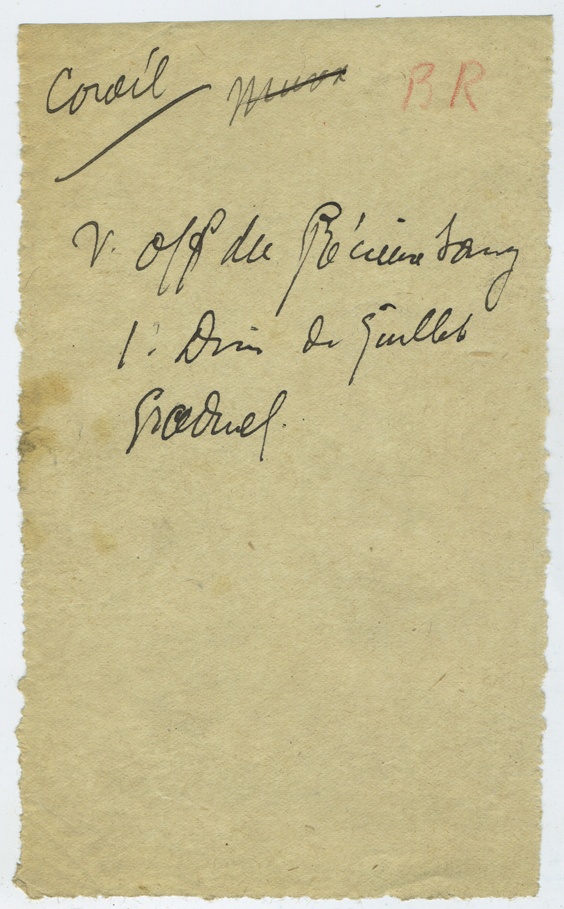 Corail BR
V. off du Précieux Sang
1. Dim de Juillet
Graduel.